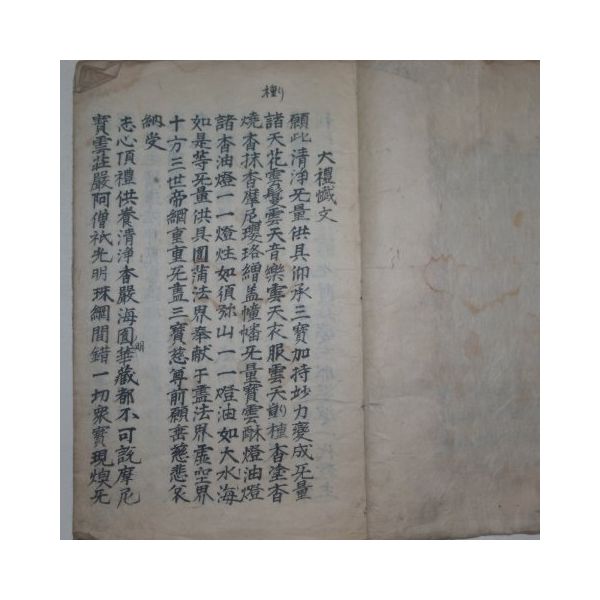 大禮懺文
願此清淨旡量供具仰承三寶加持妙力變成旡量
諸天花雲鬘雲天音樂雲天衣服雲天剆檀杳塗杳
燒杳抹杳摩尼瓔珞繒盖幢幡旡量寶雲酥燈油燈
諸杳油燈一一燈炷如須弥山一一燈油如大水海
如是等旡量供具圎蒲法界奉献于盡法界虛空界
十方三世帝網重重旡盡三寶慈尊前願垂慈悲哀
納受
志心頂禮供養清淨杳嚴海圎華藏都不可說摩尼
寶雲莊嚴阿僧祇光明珠網間錯一切衆寶現煥旡